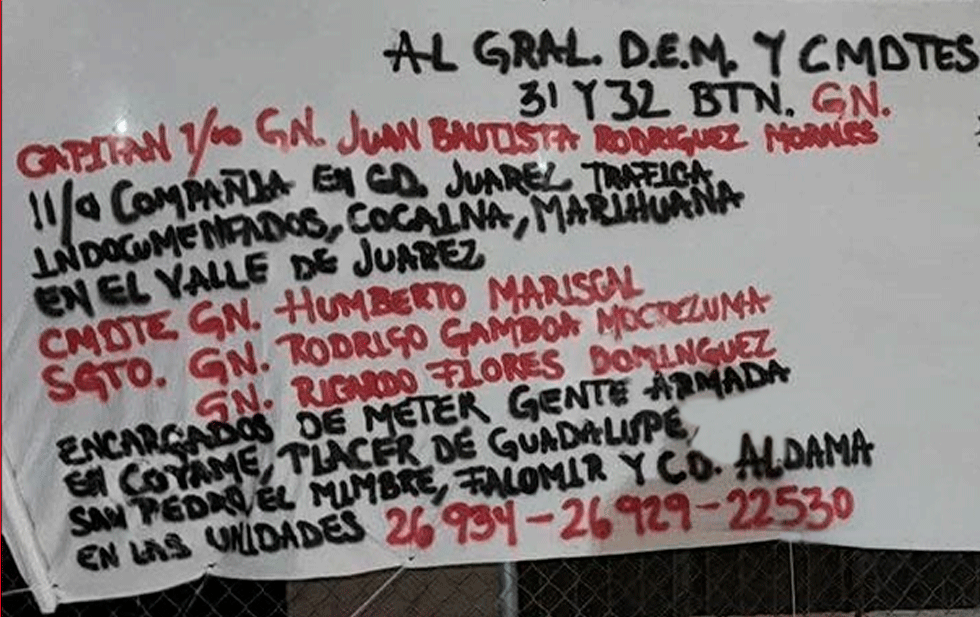 AL GRAL. D.E.M. Y CMDTES
31 Y 32 BTN. GN.
CAPITAN 1/ro GN. JUAN BAUTISTA RODRIGUEZ MORALES
11/a COMPAÑIA EN CD. JUAREZ TRAFICA
INDOCUMENTADOS, COCAINA, MARIHUANA
EN EL VALLE DE JUAREZ
CMDTE GN. HUMBERTO MARISCAL
SGTO. GN. RODRIGO GAMBOA MOCTEZUMA
GN. RICARDO FLORES DOMINGUEZ
ENCARGADOS DE METER GENTE ARMADA
EN COYAME, PLACER DE GUADALUPE,
SAN PEDRO, EL MIMBRE, FALOMIR Y CD. ALDAMA
EN LAS UNIDADES 26934-26929-22530